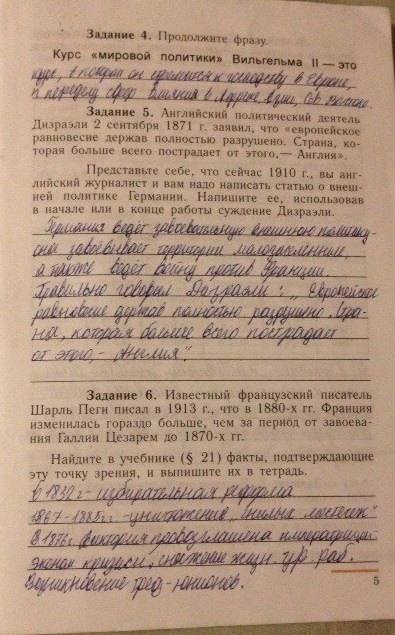 Задание 4. Продолжите фразу.
Курс «мировой политики» Вильгельма II — это
курс, в котором он стремился к господству в Европе,
к переделу сфер влияния в Африке и
Задание 5. Английский политический деятель
Дизраэли 2 сентября 1871 г. заявил, что «европейское
равновесие держав полностью разрушено. Страна, ко-
торая больше всего пострадает от этого,— Англия».
Представьте себе, что сейчас 1910 г., вы анг-
лийский журналист и вам надо написать статью о внеш-
ней политике Германии. Напишите ее, использовав
в начале или в конце работы суждение Дизраэли.
Германия ведёт завоевательную внешнюю политику
она завоёвывает территории
а также ведёт войну против Франции.
Правильно говорил Дизраэли: „Европейское
равновесие держав полностью разрушено. Стра-
на, которая больше всего пострадает
от этого, - Англия".
Задание 6. Известный французский писатель
Шарль Пеги писал в 1913 г., что в 1880-х гг. Франция
изменилась гораздо больше, чем за период от завоева-
ния Галлии Цезарем до 1870-х гг.
Найдите в учебнике (§ 21) факты, подтверждающие
эту точку зрения, и выпишите их в тетрадь.
избирательная реформа
уничтожение „гнилых местечек"
В 1876г. Виктория провозглашена императрицей
эконом кризисы, снижение жизн. ур. раб.
Возникновение тред-юнионов.
5